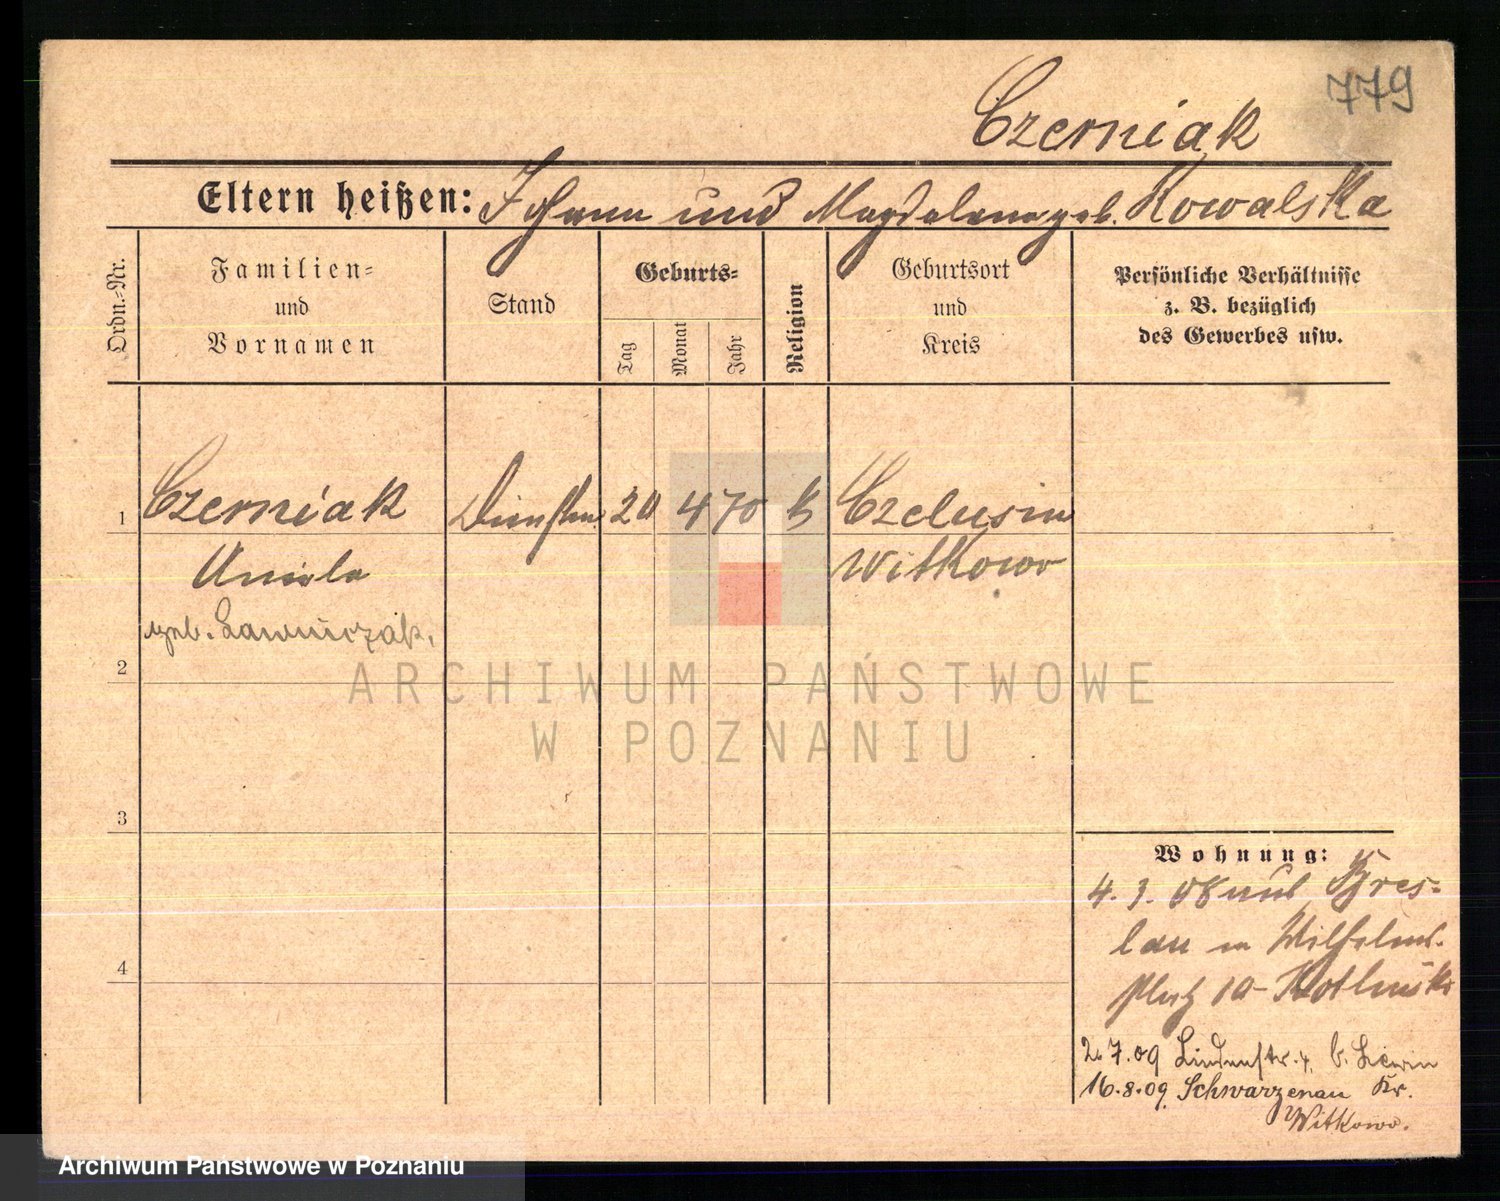 779
Czerniak
Eltern heißen: Johann und Magdalena geb. Kowalska
Ordn.-Nr.
Familien-
und
Vornamen
Stand
Geburts-
Tag
Monat
Jahr
Religion
Geburtsort
und
Kreis
Persönliche Verhältnisse
z. B. bezüglich
des Gewerbes usw.
1 Czerniak 20 4 70 k Czeluscin
Aniela Witkowo
geb. Ławniczak.
2
ARCHIWUM PAŃSTWOWE
W POZNANIU
3
Wohnung:
4. 3. 08 aus Bres-
lau in Wilhelms-
platz 10
4
2.7.09 Lindenstr. 4, b. Lewin
16.8.09 Schwarzenau Kr.
Witkowo.
Archiwum Państwowe w Poznaniu